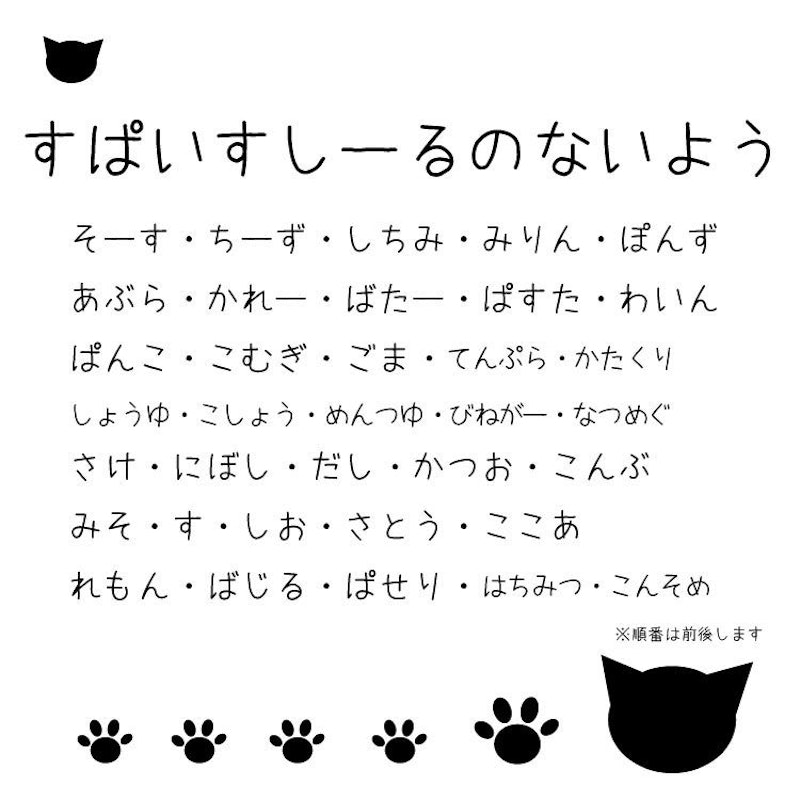 すぱいすしーるのないよう
そーす・ちーず・しちみ・みりん・ぽんず
あぶら・かれー・ばたー・ぱすた・わいん
ぱんこ・こむぎ・ごま・てんぷら・かたくり
しょうゆ・こしょう・めんつゆ・びねがー・なつめぐ
さけ・にぼし・だし・かつお・こんぶ
みそ・す・しお・さとう・ここあ
れもん・ばじる・ぱせり・はちみつ・こんそめ
※順番は前後します